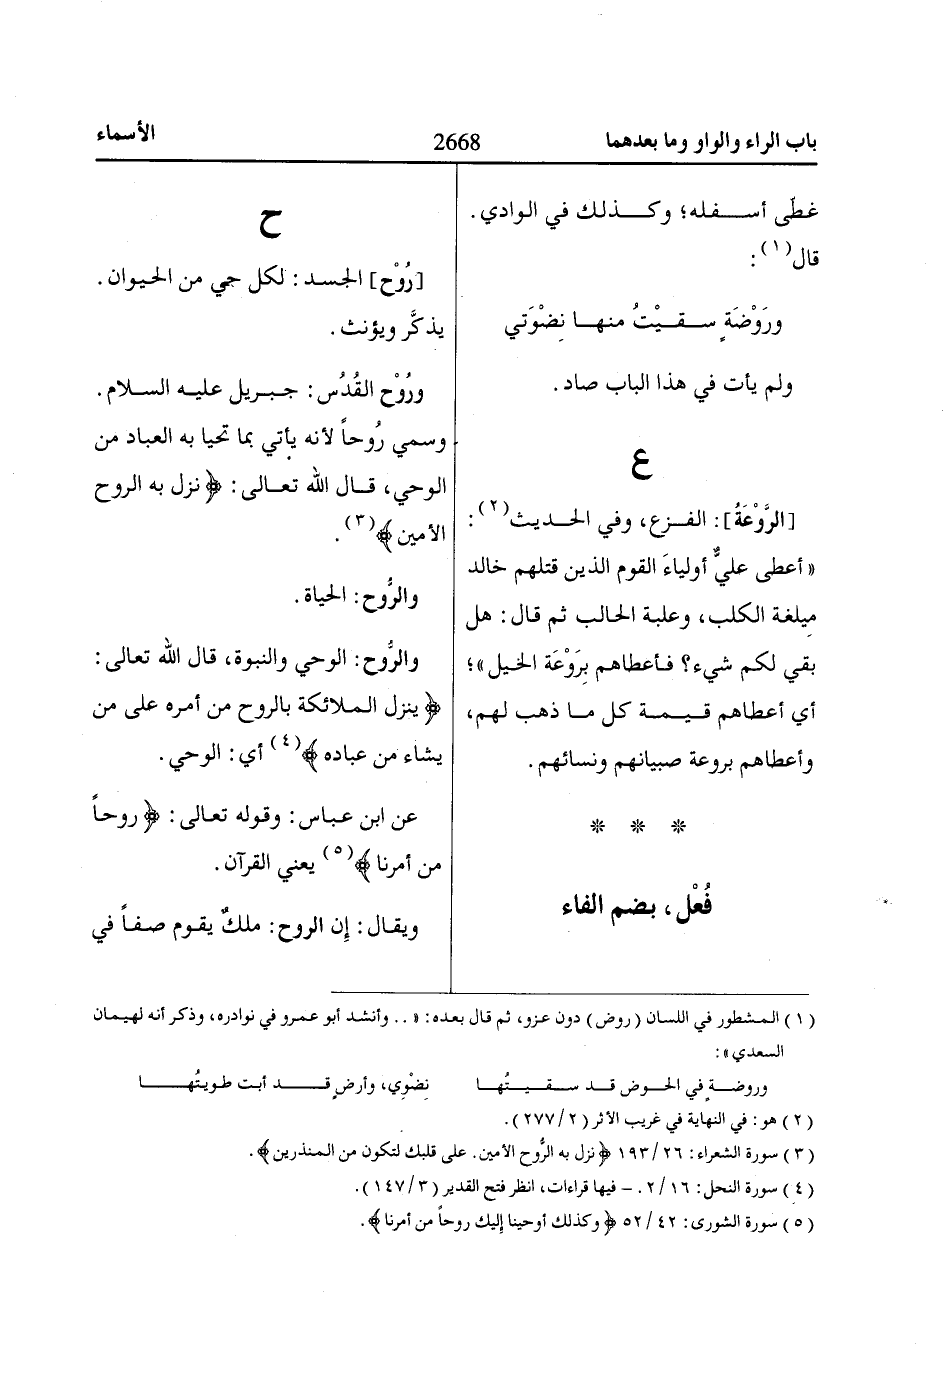 باب الراء والواو وما بعدهما
2668
الأسماء
غطَّى أسفله؛ وكذلك في الوادي.
قال(١):
ورَوْضَةٍ سقيْتُ منها نِضْوَتي
ولم يأت في هذا الباب صاد.
ع
[الرَّوْعَةُ]: الفزع، وفي الحديث(٢):
«أعطى عليٌّ أولياءَ القوم الذين قتلهم خالد
مِيلغة الكلب، وعلبة الحالب ثم قال: هل
بقي لكم شيء؟ فأعطاهم بِرَوْعَة الخيل»؛
أي أعطاهم قيمة كل ما ذهب لهم،
وأعطاهم بروعة صبيانهم ونسائهم.
* * *
فُعْل، بضم الفاء
ح
[رُوْح] الجسد: لكل حي من الحيوان.
يذكَّر ويؤنث.
ورُوْح القُدُس: جبريل عليه السلام.
وسمي رُوحاً لأنه يأتي بما تحيا به العباد من
الوحي، قال الله تعالى: ﴿نزل به الروح
الأمين﴾(٣).
والرُّوح: الحياة.
والرُّوح: الوحي والنبوة، قال الله تعالى:
﴿ينزل الملائكة بالروح من أمره على من
يشاء من عباده﴾(٤) أي: الوحي.
عن ابن عباس: وقوله تعالى: ﴿روحاً
من أمرنا﴾(٥) يعني القرآن.
ويقال: إن الروح: ملكٌ يقوم صفاً في
(١) المشطور في اللسان (روض) دون عزو، ثم قال بعده: «.. وأنشد أبو عمرو في نوادره، وذكر أنه لهيمان
السعدي»:
وروضةٍ في الحوض قد سقيتُها نِضْوِي، وأرضٍ قد أبت طويتُها
(٢) هو: في النهاية في غريب الأثر (٢/٢٧٧).
(٣) سورة الشعراء: ٢٦/١٩٣ ﴿نزل به الرُّوح الأمين. على قلبك لتكون من المنذرين﴾.
(٤) سورة النحل: ١٦/٢. - فيها قراءات، انظر فتح القدير (٣/١٤٧).
(٥) سورة الشورى: ٤٢/٥٢ ﴿وكذلك أوحينا إليك روحاً من أمرنا﴾.